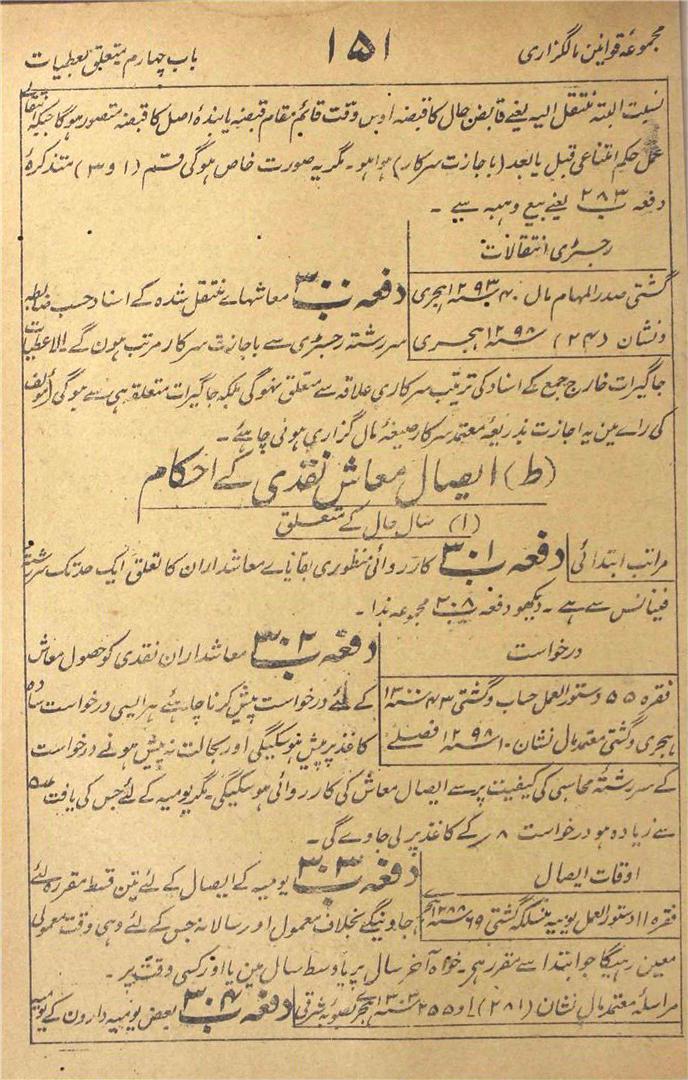 مجموعۂ قوانین مالگزاری
۱۵۱
باب چہارم متعلق بعطیات
نسبت البتہ منتقل الیہ یعنے قابض حال کا قبضہ اوس وقت قائم مقام قبضہ یابندۂ اصل کا قبضہ متصور ہوگا جبکہ انتقالی
عمل حکم امتناعی قبل یا بعد (باجازت سرکار) ہوا ہو۔ مگر یہ صورت خاص ہوگی قسم (۱ و ۳) متذکرۂ
دفعہ ب ۲۸۳ یعنے بیع و ہبہ سے ۔
رجسٹری انتقالات
گشتی صدر المہام مال ۴۰ سنہ ۱۲۹۳ ہجری
ونشان (۲۴) سنہ ۱۲۹۸ ہجری
دفعہ ب ۳۰۰ معاشہاے منتقل شدہ کے اسناد حسب ضابطہ
سررشتہ رجسٹری سے باجازت سرکار مرتب ہون گے۔ الا عطیات
جاگیرات خارج جمع کے اسناد کی ترتیب سرکاری علاقہ سے متعلق نہوگی بلکہ جاگیرات متعلق ہی سے ہوگی (مولف
کی راے مین یہ اجازت بذریعۂ معتمد سرکار صیغۂ مال گزاری ہونی چاہئے ۔
(ط) ایصال معاش نقدی کے احکام
(۱) سال حال کے متعلق
مراتب ابتدائی
دفعہ ب ۳۰۱ کارروائی منظوری بقایاے معاشداران کا تعلق ایک حد تک سررشتہ
فینانس سے ہے ۔ دیکھو دفعہ ب ۲۰۸ مجموعہ ہذا ۔
درخواست
فقرہ ۵۵ دستور العمل حساب و گشتی ۴۳ سنہ ۱۳۰۰
ہجری و گشتی معتمد مال نشان ۱۰ سنہ ۱۲۹۸ فصلے
دفعہ ب ۳۰۲ معاشداران نقدی کو حصول معاش
کے لئے درخواست پیش کرنا چاہئے ہر ایسی درخواست سادہ
کاغذ پر پیش ہوسکیگی اور بحالت نہ پیش ہونے درخواست
کے سررشتۂ محاسبی کی کیفیت پر سے ایصال معاش کی کارروائی ہوسکیگی۔ مگر یومیہ کے لئے جس کی یافت
سے زیادہ ہو درخواست ۸ ر کے کاغذ پر لی جاوے گی ۔
اوقات ایصال
فقرہ ۱۱ دستور العمل یومیہ منسلکہ گشتی ۶۹ سنہ ۱۲۸۸
دفعہ ب ۳۰۳ یومیہ کے ایصال کے لئے تین قسط مقررہ لئے
جاوینگے بخلاف معمول اور سالانہ جس کے لئے وہی وقت معمولی
معین رہیگا جو ابتدا سے مقرر ہے۔ خواہ آخر سال پر یا وسط سال مین یا اور کسی وقت پر ۔
مراسلۂ معتمد مال نشان (۲۸۱) و ۲۵۵ سنہ ۱۳۰۳ بصوبہ شرقی
دفعہ ب ۳۰۴ بعض یومیہ دارون کے یومیہ